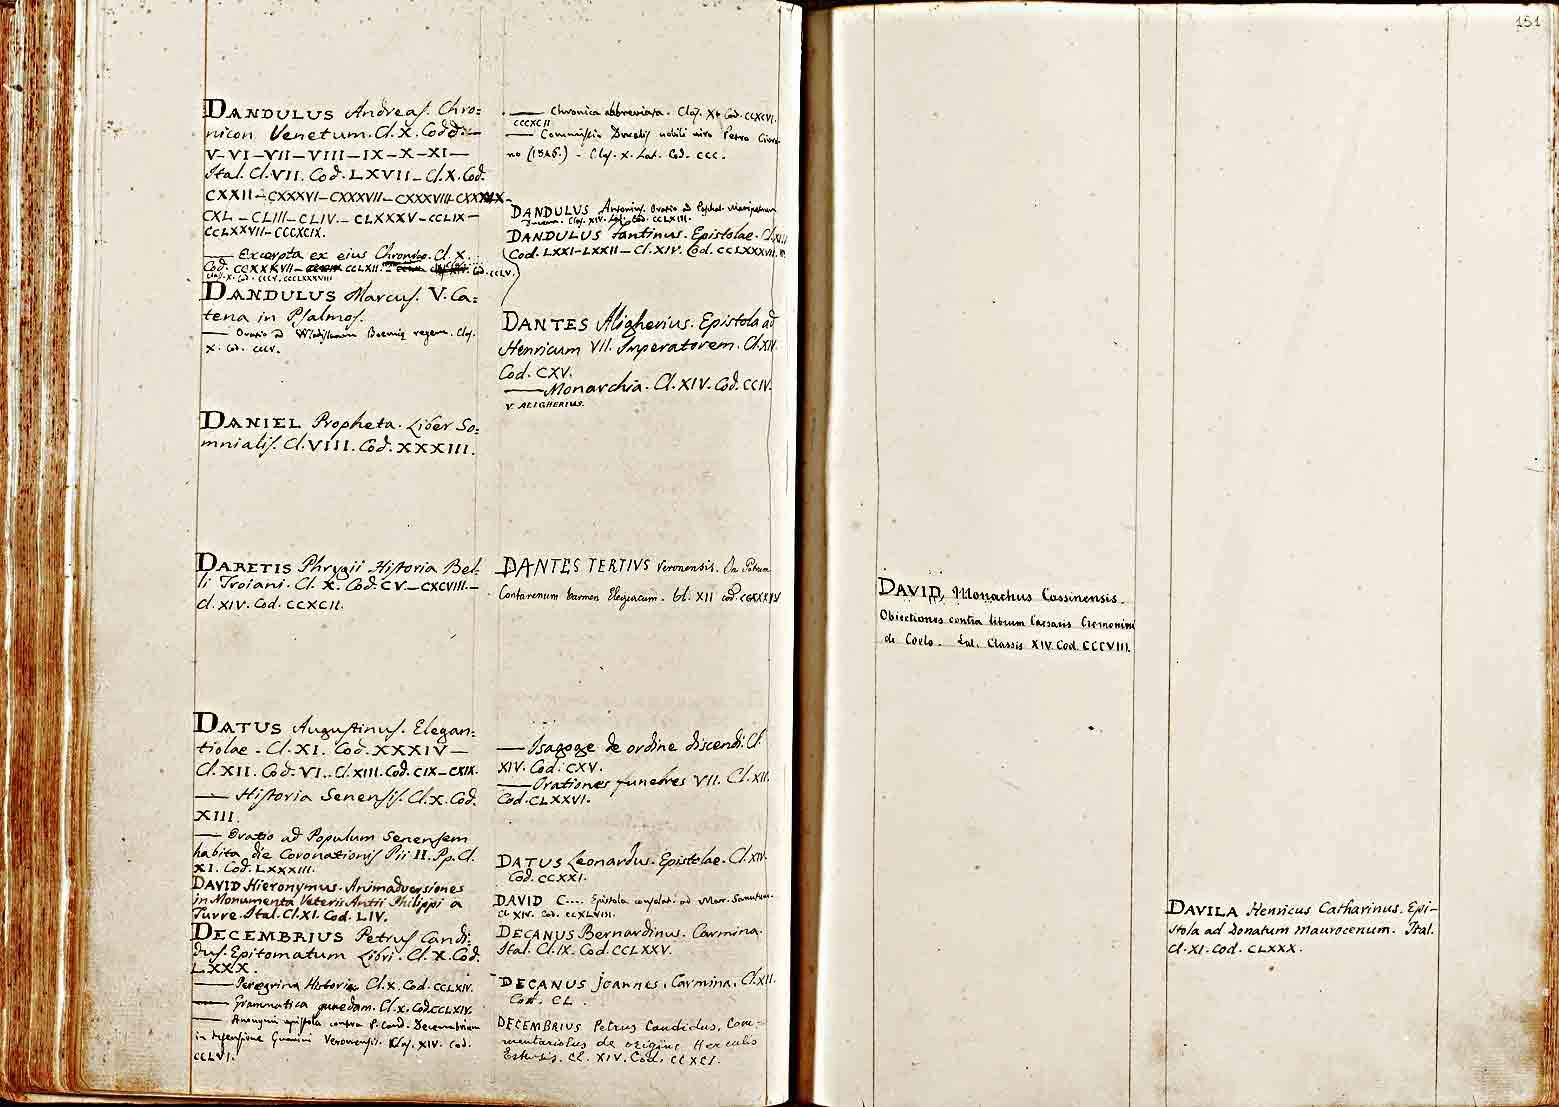 DANDULUS Andreas. Chro=
nicon Venetum. Cl. X. Codd.—
V-VI-VII-VIII-IX-X-XI—
Ital. Cl. VII. Cod. LXVII—Cl. X. Cod.
CXXII—CXXXVI—CXXXVII—CXXXVIII
CXL—CLIII—CLIV—CLXXXV—CCLIX—
CCLXXVII—CCCXCIX.
— Excerpta ex eius Cl. X.
Cod. CCXXXVII— CCLXII. Cod. CCCV.
Class. X. Cod. CCCV. CCCLXXXVIII
DANDULUS Marcus. V. Ca=
tena in Psalmos.
— Oratio ad Wladislaum Boemię regem. Clas.
X. Cod. CCCV.
DANIEL Propheta. Liber So=
mnialis. Cl. VIII. Cod. XXXIII.
DARETIS Phrygii Historia Bel=
li Troiani. Cl. X. Cod. CV—CXCVIII.—
Cl. XIV. Cod. CCXCII.
DATUS Augustinus. Elegan=
tiolae. Cl. XI. Cod. XXXIV—
Cl. XII. Cod. VI. Cl. XIII. Cod. CIX—CXIX.
— Historia Senensis. Cl. X. Cod.
XIII.
— Oratio ad Populum Senensem
habita die Coronationis Pii II. Pp. Cl.
XI. Cod. LXXXIII.
DAVID Hieronymus. Animadversiones
in Monumenta Veteris Antii Philippi a
Turre. Ital. Cl. XI. Cod. LIV.
DECEMBRIUS Petrus Candi=
dus. Epitomatum Libri. Cl. X. Cod.
LXXX.
— Peregrina Historia Cl. X. Cod. CCLXIV.
— Grammatica quaedam. Cl. X. Cod. CCLXIV.
— Anonymi epistola contra P. Cand. Decembrium
in defensione Guarini Veronensis. Clas. XIV. Cod.
CCLVI.
— Chronica abbreviata. Clas. X. Cod. CCXCVI.
CCCXCII
— Commissio Ducalis nobili viro Petro Civra=
no (1346.) - Clas. X. Lat. Cod. CCC.
DANDULUS Antonius. Oratio ad
Clas. XIV. Lat. Cod. CCLXIII.
DANDULUS Fantinus. Epistolae. Cl. XIII
Cod. LXXI—LXXII—Cl. XIV. Cod. CCLXXXVII.
DANTES Aligherius. Epistola ad
Henricum VII. Imperatorem. Cl. XIV.
Cod. CXV.
— Monarchia. Cl. XIV. Cod. CCIV.
V. ALIGHERIUS.
DANTES TERTIVS Veronensis. In Petrum
Contarenum Carmen Elegiacum. Cl. XII cod.
— Isagoge de ordine discendi. Cl.
XIV. Cod. CXV.
— Orationes funebres VII. Cl. XII.
Cod. CLXXVI.
DATUS Leonardus. Epistolae. Cl. XIV.
Cod. CCXXI.
DAVID C.... Epistola consolat. ad Mar. Sanutum.
Cl. XIV. Cod. CCXLVIII.
DECANUS Bernardinus. Carmina.
Ital. Cl. IX. Cod. CCLXXV.
DECANUS Joannes. Carmina. Cl. XII.
Cod. CL.
DECEMBRIUS Petrus Candidus, Com=
mentariolus de origine Herculis
Estensis. Cl. XIV. Cod. CCXCI.
151
DAVID, Monachus Cassinensis.
Obiectiones contra librum Caesaris Cremonini
de Coelo. Lat. Classis XIV. Cod. CCCVIII.
DAVILA Henricus Catharinus. Epi-
stola ad Donatum Maurocenum. Ital.
Cl. XI. Cod. CLXXX.